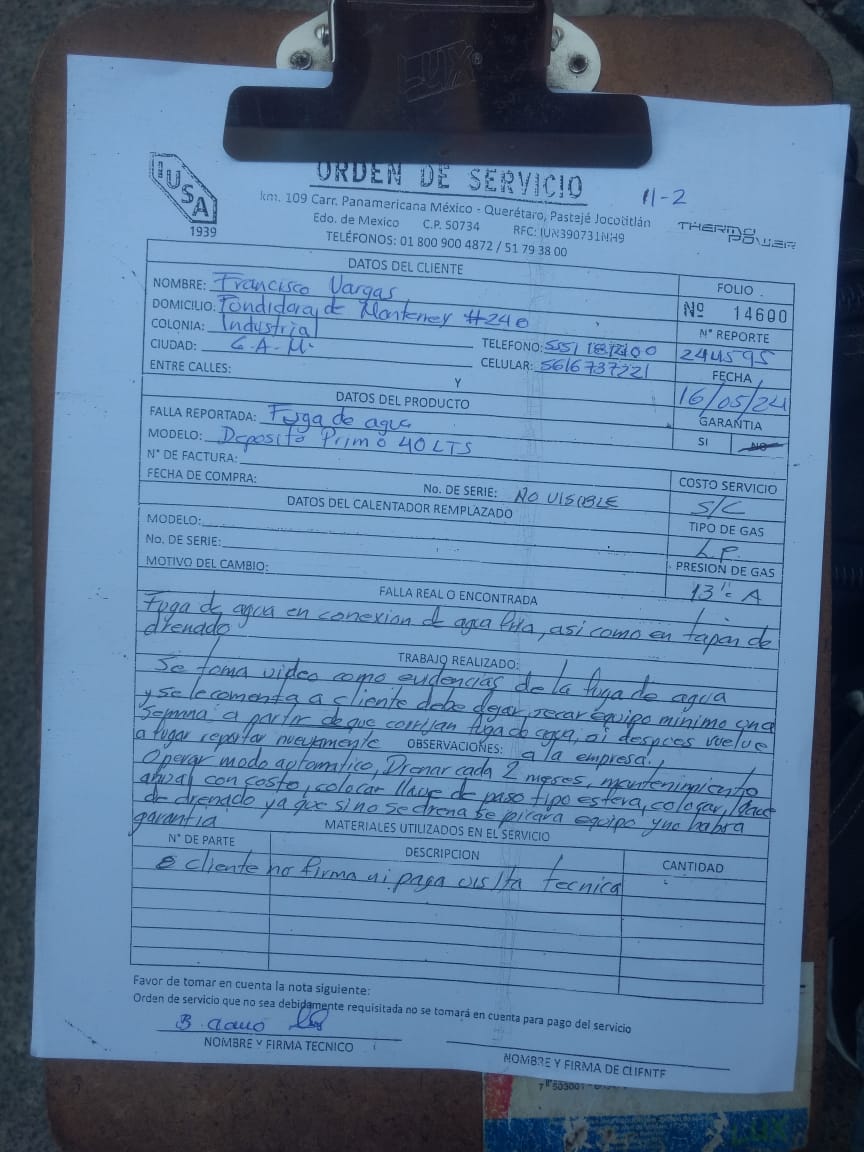 LUX
ORDEN DE SERVICIO
11-2
IUSA
1939
km. 109 Carr. Panamericana México - Querétaro, Pastejé Jocotitlán
Edo. de Mexico C.P. 50734 RFC: IUN390731NH9
TELÉFONOS: 01 800 900 4872 / 51 79 38 00
THERMO POWER
DATOS DEL CLIENTE
FOLIO
NOMBRE: Francisco Vargas
Nº 14600
DOMICILIO: Fondidora de Monterrey #240
Nº REPORTE
COLONIA: Industrial
TELEFONO:
244595
CIUDAD: G.A.M.
CELULAR: 5616737221
FECHA
ENTRE CALLES: Y
16/05/24
DATOS DEL PRODUCTO
GARANTIA
FALLA REPORTADA: Fuga de agua
SI NO
MODELO: Deposito Primo 40 LTS
N° DE FACTURA:
No. DE SERIE: NO VISIBLE
COSTO SERVICIO
FECHA DE COMPRA:
S/C
DATOS DEL CALENTADOR REMPLAZADO
TIPO DE GAS
MODELO:
L.P.
No. DE SERIE:
PRESION DE GAS
MOTIVO DEL CAMBIO:
13"c A
FALLA REAL O ENCONTRADA
Fuga de agua en conexion de agua fria, asi como en tapon de
drenado
TRABAJO REALIZADO:
Se toma video como evidencias de la fuga de agua
y se le comenta a cliente debe dejar secar equipo minimo una
semana a partir de que corrijan fuga de agua, si despues vuelve
a fugar reportar nuevamente a la empresa.
OBSERVACIONES:
Operar modo automatico, Drenar cada 2 meses, mantenimiento
anual con costo, colocar llave de paso tipo esfera, colocar llave
de drenado ya que si no se drena se picara equipo y no habra
garantia
MATERIALES UTILIZADOS EN EL SERVICIO
N° DE PARTE DESCRIPCION CANTIDAD
cliente no firma ni paga visita tecnica
Favor de tomar en cuenta la nota siguiente:
Orden de servicio que no sea debidamente requisitada no se tomará en cuenta para pago del servicio
NOMBRE Y FIRMA TECNICO
NOMBRE Y FIRMA DE CLIENTE